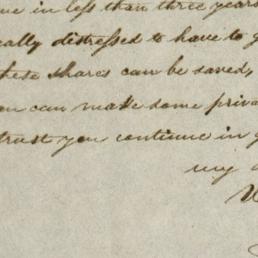 me in less than three years
ally distressed to have to g
these shares can be saved,
ou can make some priva
trust you continue in g
my d